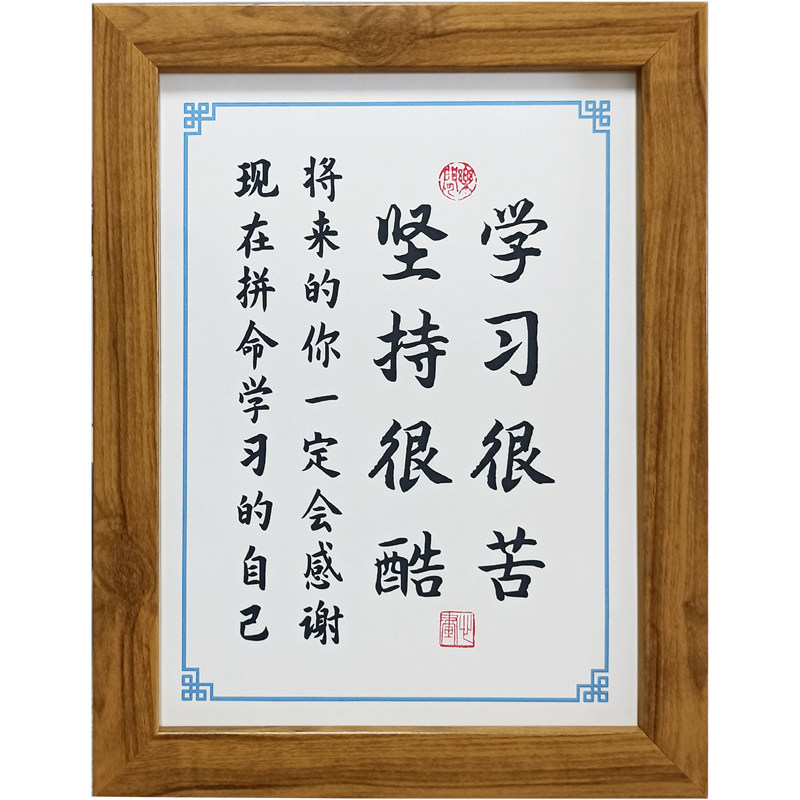 学习很苦
坚持很酷
将来的你一定会感谢
现在拼命学习的自己